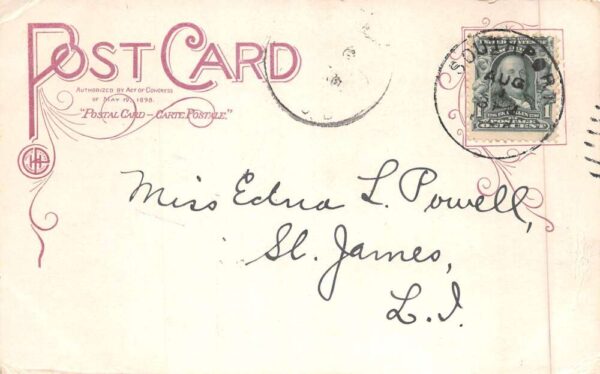 POST CARD
AUTHORIZED BY ACT OF CONGRESS
OF MAY 19, 1898.
"POSTAL CARD – CARTE POSTALE."
AUG
POSTAGE
ONE CENT
Miss Edna L. Powell,
St. James,
L.I.